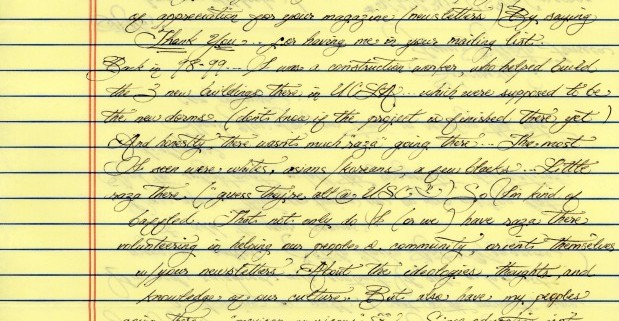 of appreciation for your magazine (newsletters) By saying
Thank You... for having me in your mailing list.
Back in 98-99... I was a construction worker, who helped build
the 3 new buildings there in UCLA... which were supposed to be
the new dorms. (don't know if the project is finished there yet)
And honestly there wasn't much "raza" going there... The most
I seen were whites, asians/koreans, a few blacks... Little
raza there. ("guess they're all @ USC"?) So I'm kind of
baffled... That not only do I (or we) have raza there
volunteering in helping our peoples & community, orients themselves
w/your newsletters. About the ideologies, thoughts, and
knowledge of our culture. But also have my peoples
going there Since education isn't